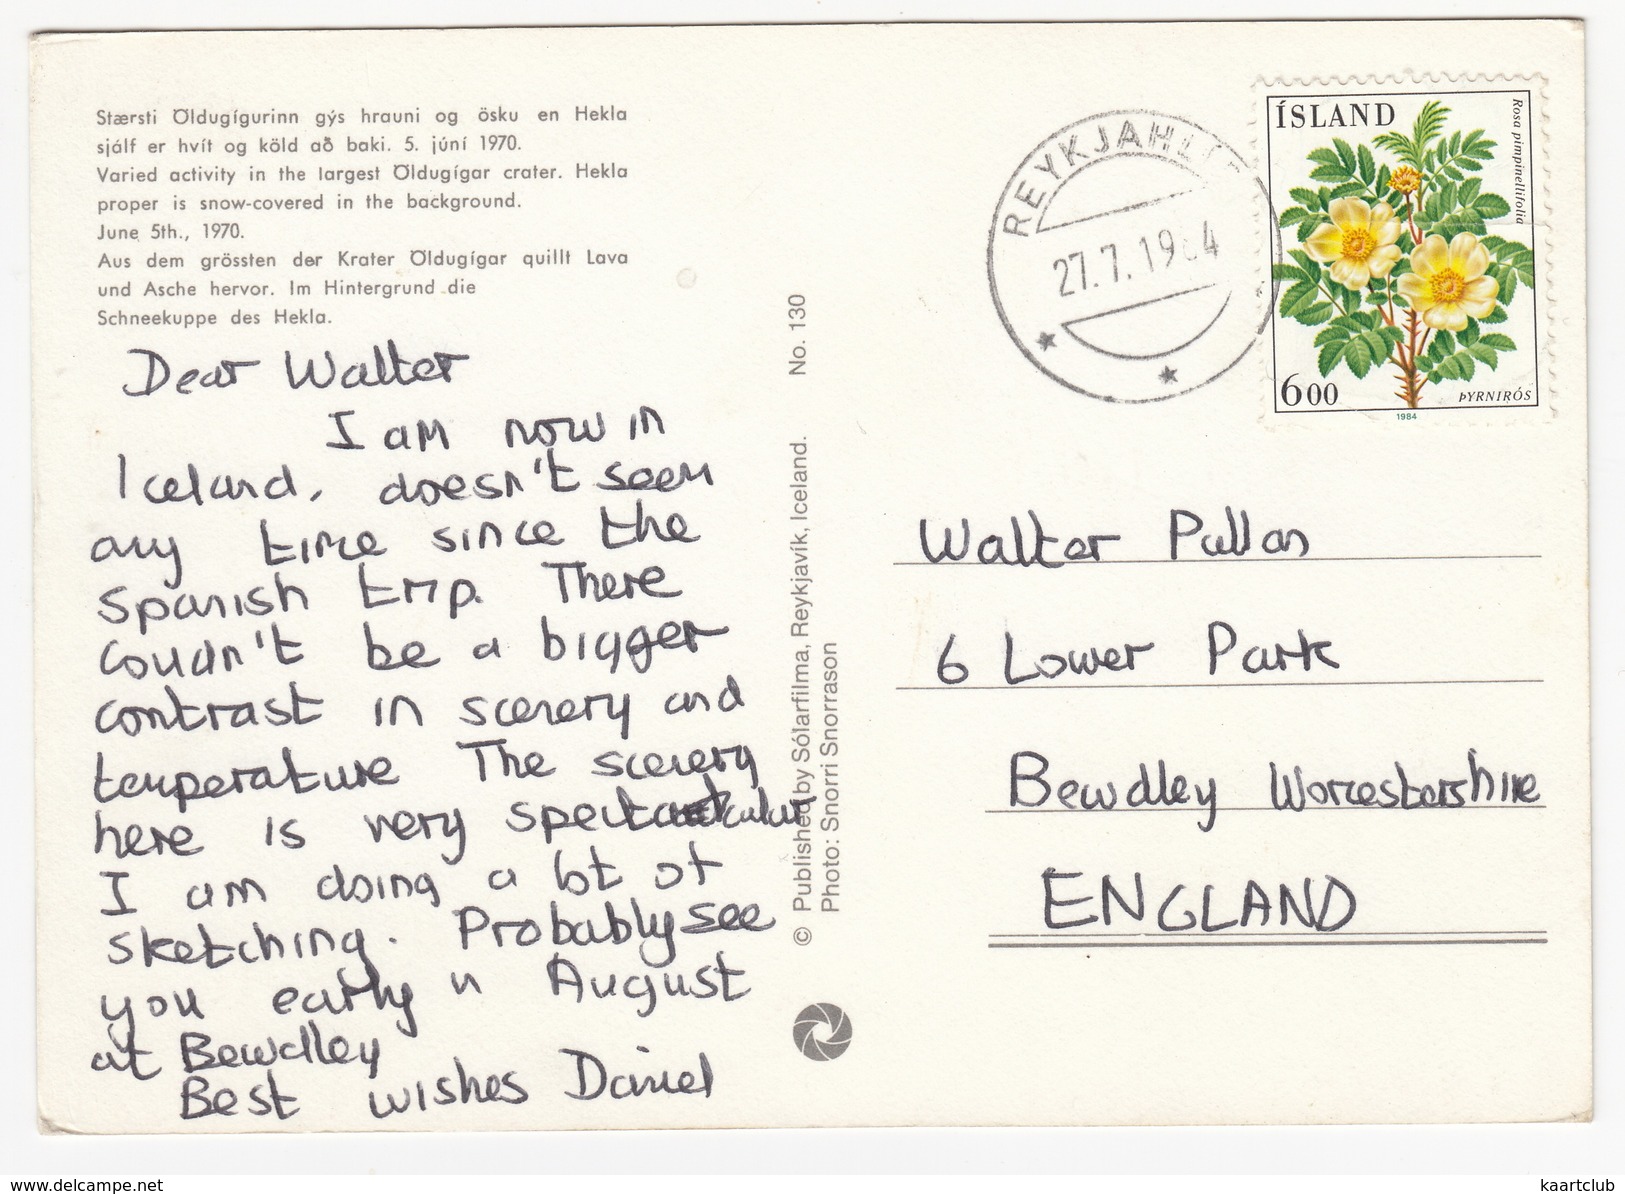 Stærsti Öldugígurinn gýs hrauni og ösku en Hekla
sjálf er hvít og köld að baki. 5. júní 1970.
Varied activity in the largest Öldugígar crater. Hekla
proper is snow-covered in the background.
June 5th., 1970.
Aus dem grössten der Krater Öldugígar quillt Lava
und Asche hervor. Im Hintergrund die
Schneekuppe des Hekla.
Dear Walter
I am now in
Iceland, doesn't seem
any time since the
Spanish trip. There
couldn't be a bigger
contrast in scenery and
temperature The scenery
here is very spectacular
I am doing a lot of
sketching. Probably see
you early in August
at Bewdley
Best wishes Daniel
© Published by Sólarfilma, Reykjavík, Iceland. No. 130
Photo: Snorri Snorrason
REYKJAHLÍÐ
27.7.1984
ÍSLAND
Rosa pimpinellifolia
600
ÞYRNIRÓS
1984
Walter Pullan
6 Lower Park
Bewdley Worcestershire
ENGLAND
www.delcampe.net
kaartclub